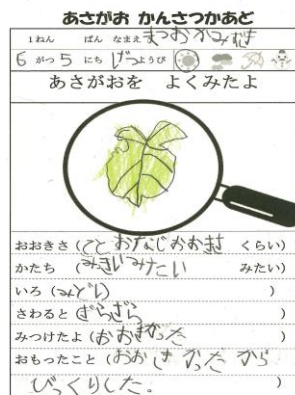 あさがお かんさつかあど
1ねん ばん なまえ まつおかつみき
6 がつ 5 にち げつ ようび
あさがおを よくみたよ
おおきさ (てと おなじおおきさ くらい)
かたち ( みたい)
いろ (みどり )
さわると (ざらざら )
みつけたよ (おおきかった )
おもったこと (おおきかったから
びっくりした。 )